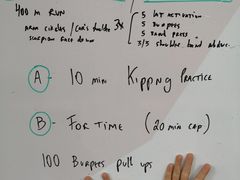 400 m RUN
arm circles / cars shoulder 3x
scorpion face down
5 LAT ACTIVATION
5 BURPEES
5 BAND PRESS
3/5 shoulder band
A - 10 min Kipping PRACTICE
B - FOR TIME (20 min CAP)
100 Burpees pull ups